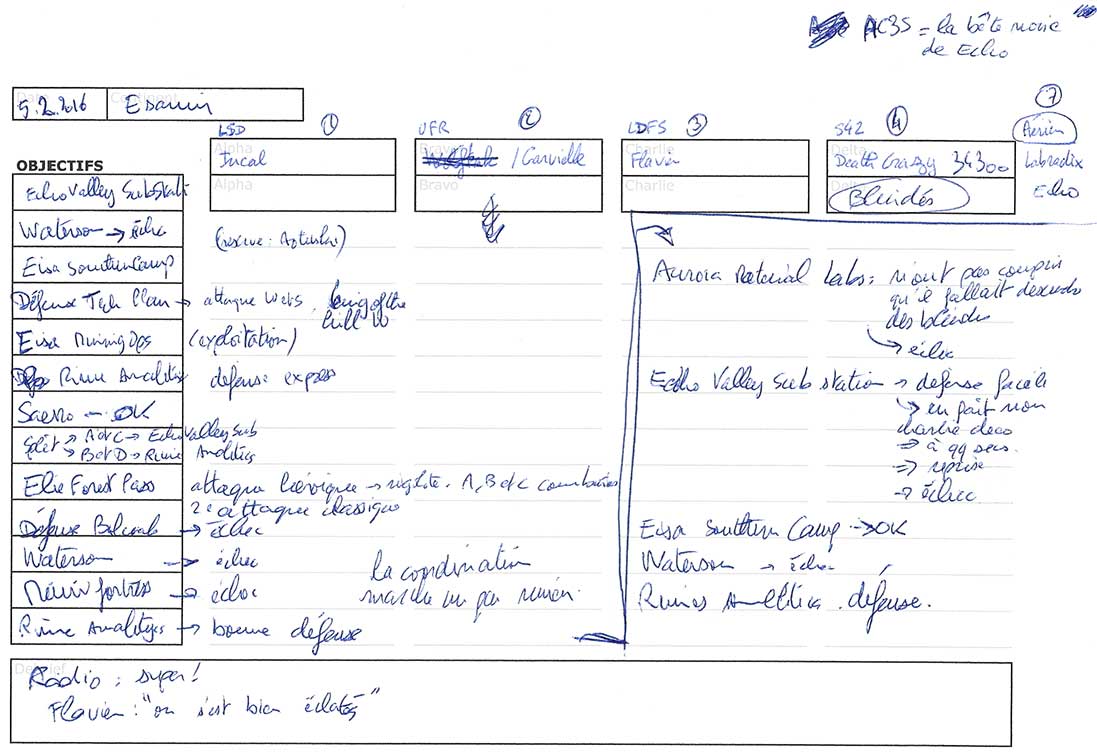 AC3S = la bête noire
de Echo
5.2.2016 Esamir
LSD 1 UFR 2 LDFS 3 S42 4 7
Alpha Bravo Charlie Delta Aérien
Jucal / Carvielle Flavien Death Crazy 34300 Labradix
OBJECTIFS
Alpha Bravo Charlie Delta Blindés Echo
Echo Valley Substati
Waterson → échec
(réserve : )
Eisa Southern Camp
Aurora Material Labs : n'ont pas compris
qu'il fallait descendre
des blindés
→ échec
Défense Tech Plan → attaque Wells, king of the
hill
Eisa Mining Ops (exploitation)
Ruine Analitics défense express
Echo Valley Sub station → défense facile
→ en fait non
charlie deco
→ à 99 secs.
⇒ reprise
→ échec
Saerro - OK
Split → A et C → Echo Valley Sub
→ B et D → Ruine Analitics
Elie Forest Pass attaque héroïque → A, B et C
2e attaque classique
Défense Balcomb → échec
Eisa Southern Camp → OK
Waterson → échec
Waterson → échec
la coordination
marche un peu
fortress → échec
Ruines défense.
Ruine Analitycs → bonne défense
Debrief
Radio : super!
Flavien : "on s'est bien éclatés"